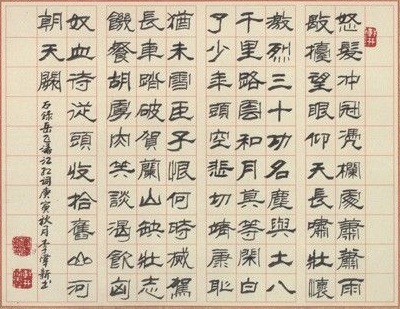 怒髮冲冠憑欄處蕭蕭雨
歇擡望眼仰天長嘯壯懷
激烈三十功名塵與土八
千里路雲和月莫等閑白
了少年頭空悲切靖康恥
猶未雪臣子恨何時滅駕
長車踏破賀蘭山缺壯志
饑餐胡虜肉笑談渴飲匈
奴血待從頭收拾舊山河
朝天闕
右錄岳飛滿江紅詞庚寅秋月李